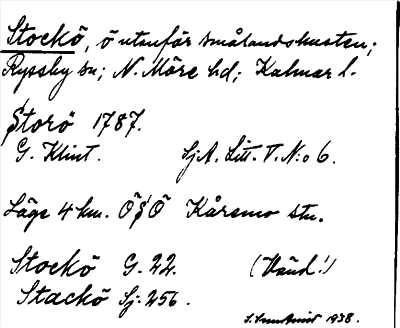 Stockö, ö utanför smålandskusten;
Ryssby sn; N. Möre hd; Kalmar l.
Storö 1787.
G. Klint. SjA. Litt. V. N:o 6.
Läge 4 km. ÖSÖ Kåremo stn.
Stockö G. 22. (Vänd!)
Stackö Sj: 256.
1938.